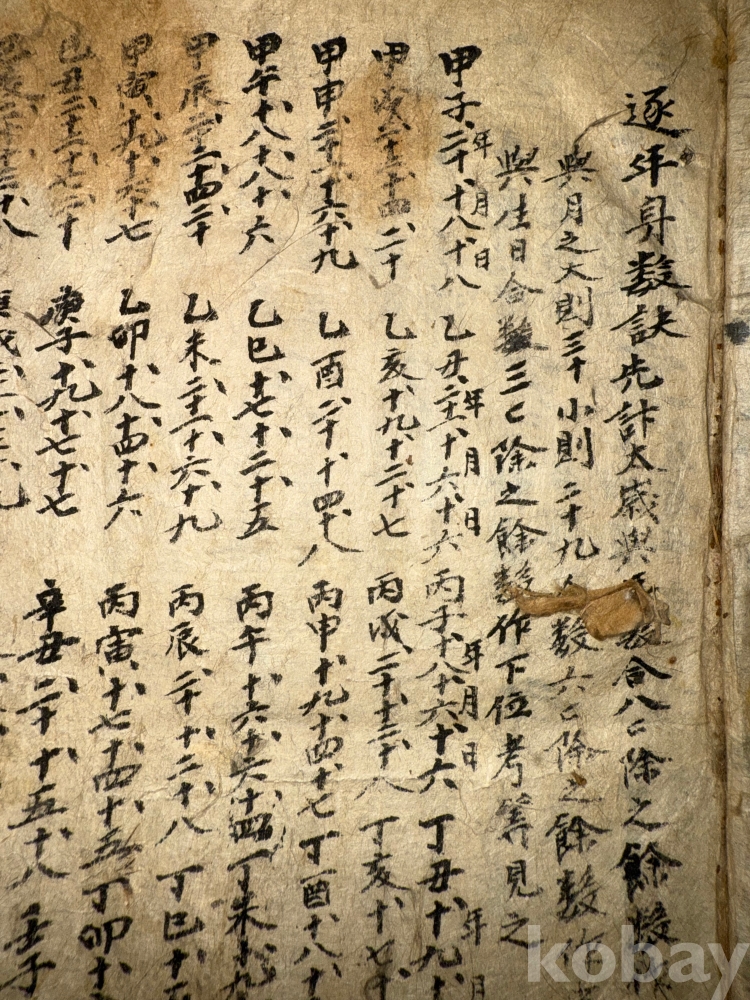 逐年身数訣先計太歲與年数合八〻除之餘数
與月之大則三十小則二十九 数六〻除之餘数作
與生日合数三〻除之餘数作下位考筭見之
年月日 年月日 年月日 年月
甲子二十十八十八 乙丑二十一十六十六 丙子十八十六十六 丁丑十九十
甲戌二十二十四二十 乙亥十九十二十七 丙戌二十十二十八 丁亥十七十
甲申二十一十六十九 乙酉二十十四十八 丙申十九十四十七 丁酉十八十
甲午十八十八十六 乙巳十七十二十五 丙午十六十六十四 丁未十九
甲辰二十二十四二十 乙未二十一十六十九 丙辰二十十二十八 丁巳十
甲寅十九十六十七 乙卯十八十四十六 丙寅十七十四十五 丁卯十
己丑二十二十七二十 庚子十九十七十七 辛丑二十十五十八 壬子
kobay